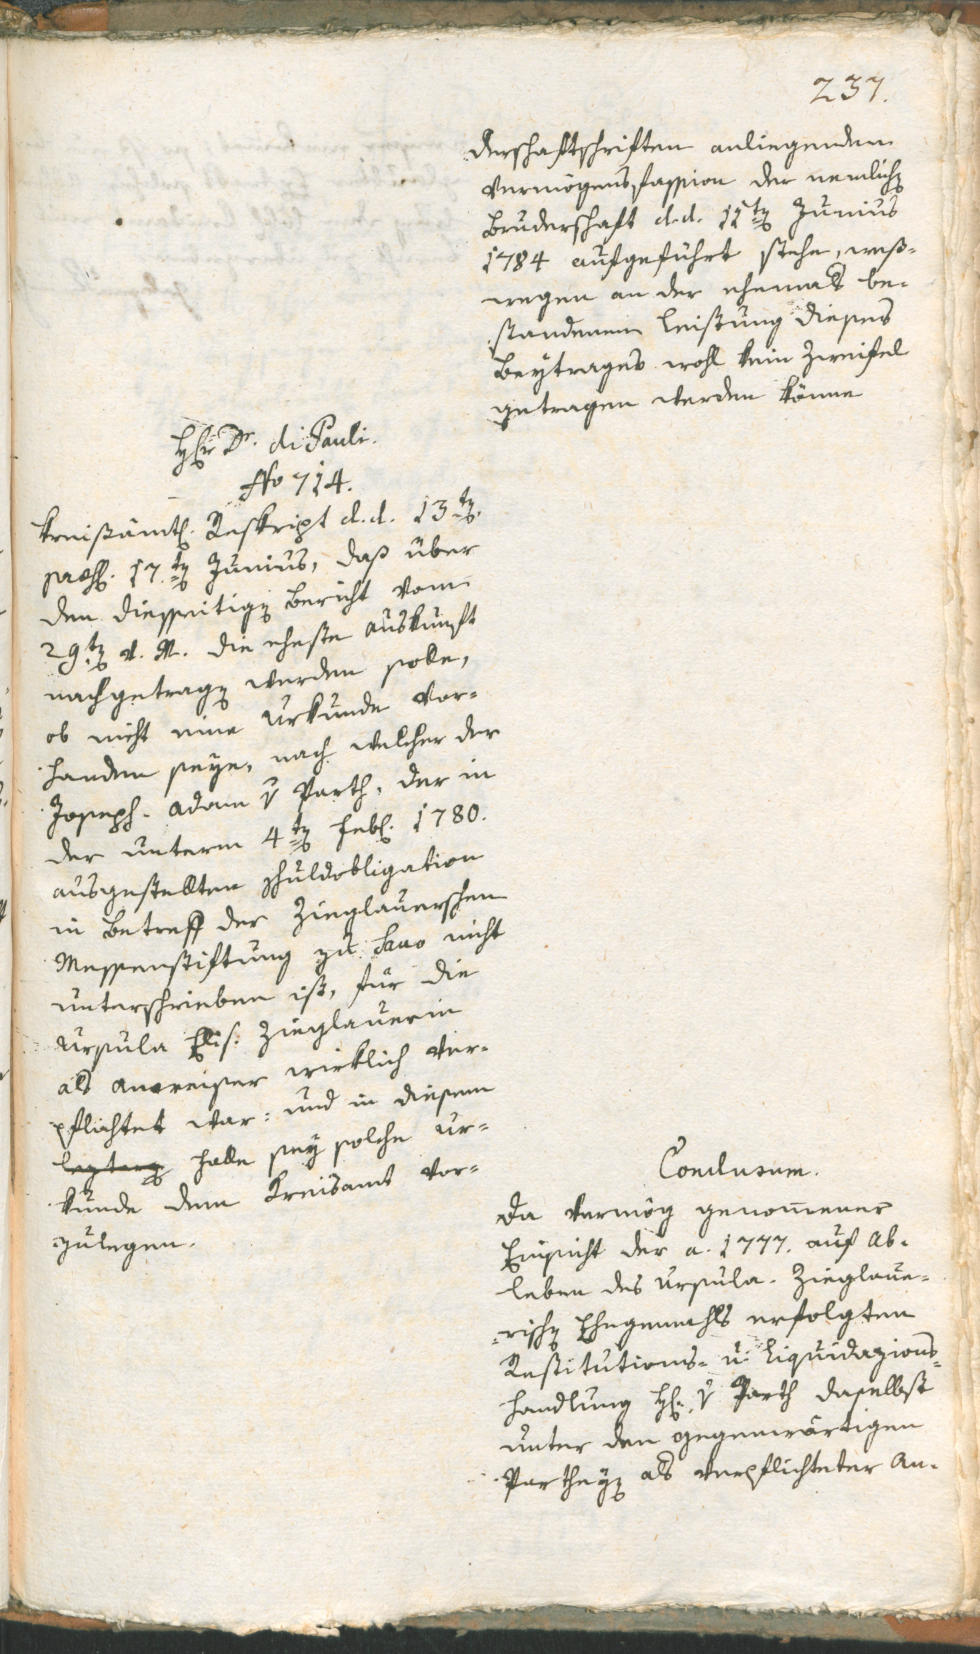 237.
derschaftschriften anliegenden
Vermögensfassion der nemlichen
Bruderschaft d. d. 15ten Junius
1784 aufgeführt stehe, weß-
wegen an der ehemals be-
standenen Leistung dieses
Beytrages wohl kein Zweifel
getragen werden könne
Hr Dr. di Pauli.
No 714.
Kreisämtl. Reskript d. d. 13ten
17ten Junius, daß über
den diesseitigen Bericht vom
29ten v. M. die eheste Auskunft
nachgetragen werden solle,
ob nicht eine Urkunde vor-
handen seye, nach welcher der
Joseph Adam v Parth, der in
der unterm 4ten Feb. 1780.
ausgestellten Schuldobligation
in Betreff der Zieglauerschen
Messenstiftung zu nicht
unterschrieben ist, für die
Ursula Elis. Zieglauerin
als Anweiser wirklich ver-
pflichtet war: und in diesem
Falle sey solche Ur-
kunde dem Kreisamt vor-
zulegen.
Conclusum.
Da vermög genommener
Einsicht der a. 1777. auf Ab-
leben des Ursula Zieglaue-
rischen Ehegemahls erfolgten
Restitutions- u Liquidazions-
handlung H. v Parth daselbst
unter den gegenwärtigen
Partheyen als verpflichteter An-